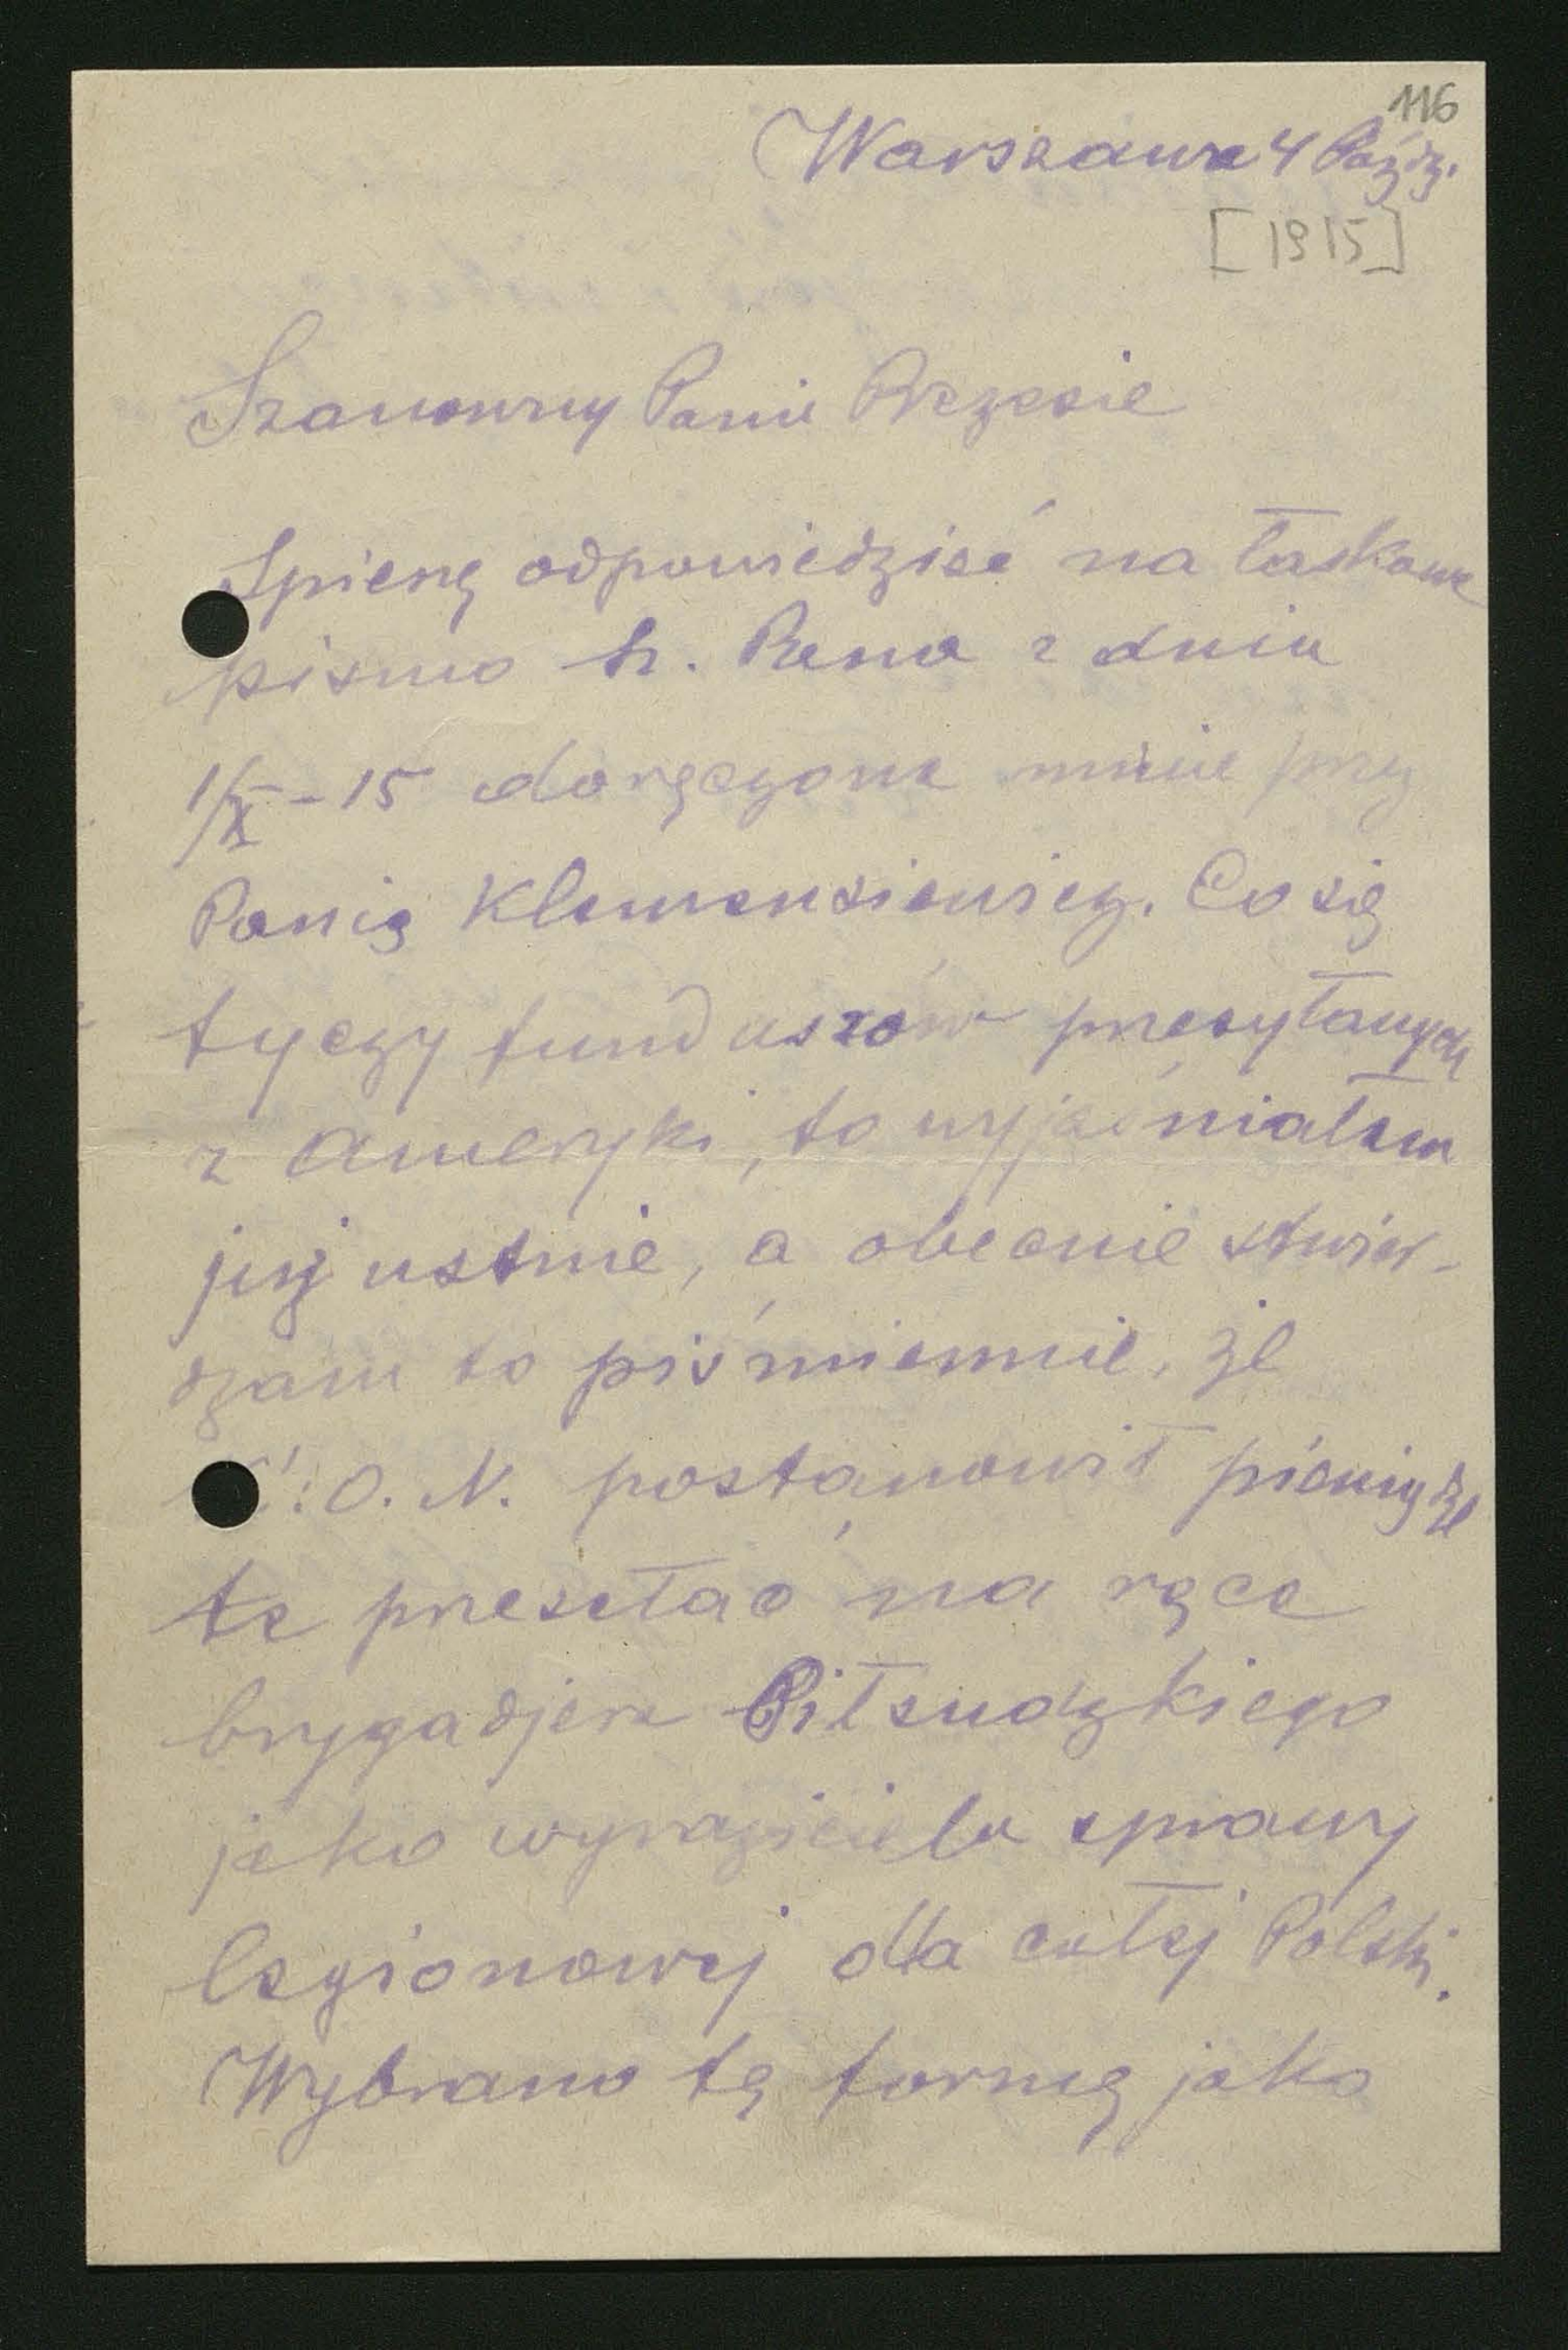 116
Warszawa 4 Paźdz.
[1915]
Szanowny Panie Prezesie
Spieszę odpowiedzieć na łaskawe
pismo Sz. Pana z dnia
1/X-15 doręczone mnie przez
Panią Klemensiewicz. Co się
tyczy funduszów przesyłanych
z Ameryki, to wyjaśniałem
jej ustnie, a obecnie stwier-
dzam to piśmiennie, że
K.O.N. postanowił pieniądze
te przesełać na ręce
brygadjera Piłsudzkiego
jako wyraziciela sprawy
legionowej dla całej Polski.
Wybrano tę formę jako